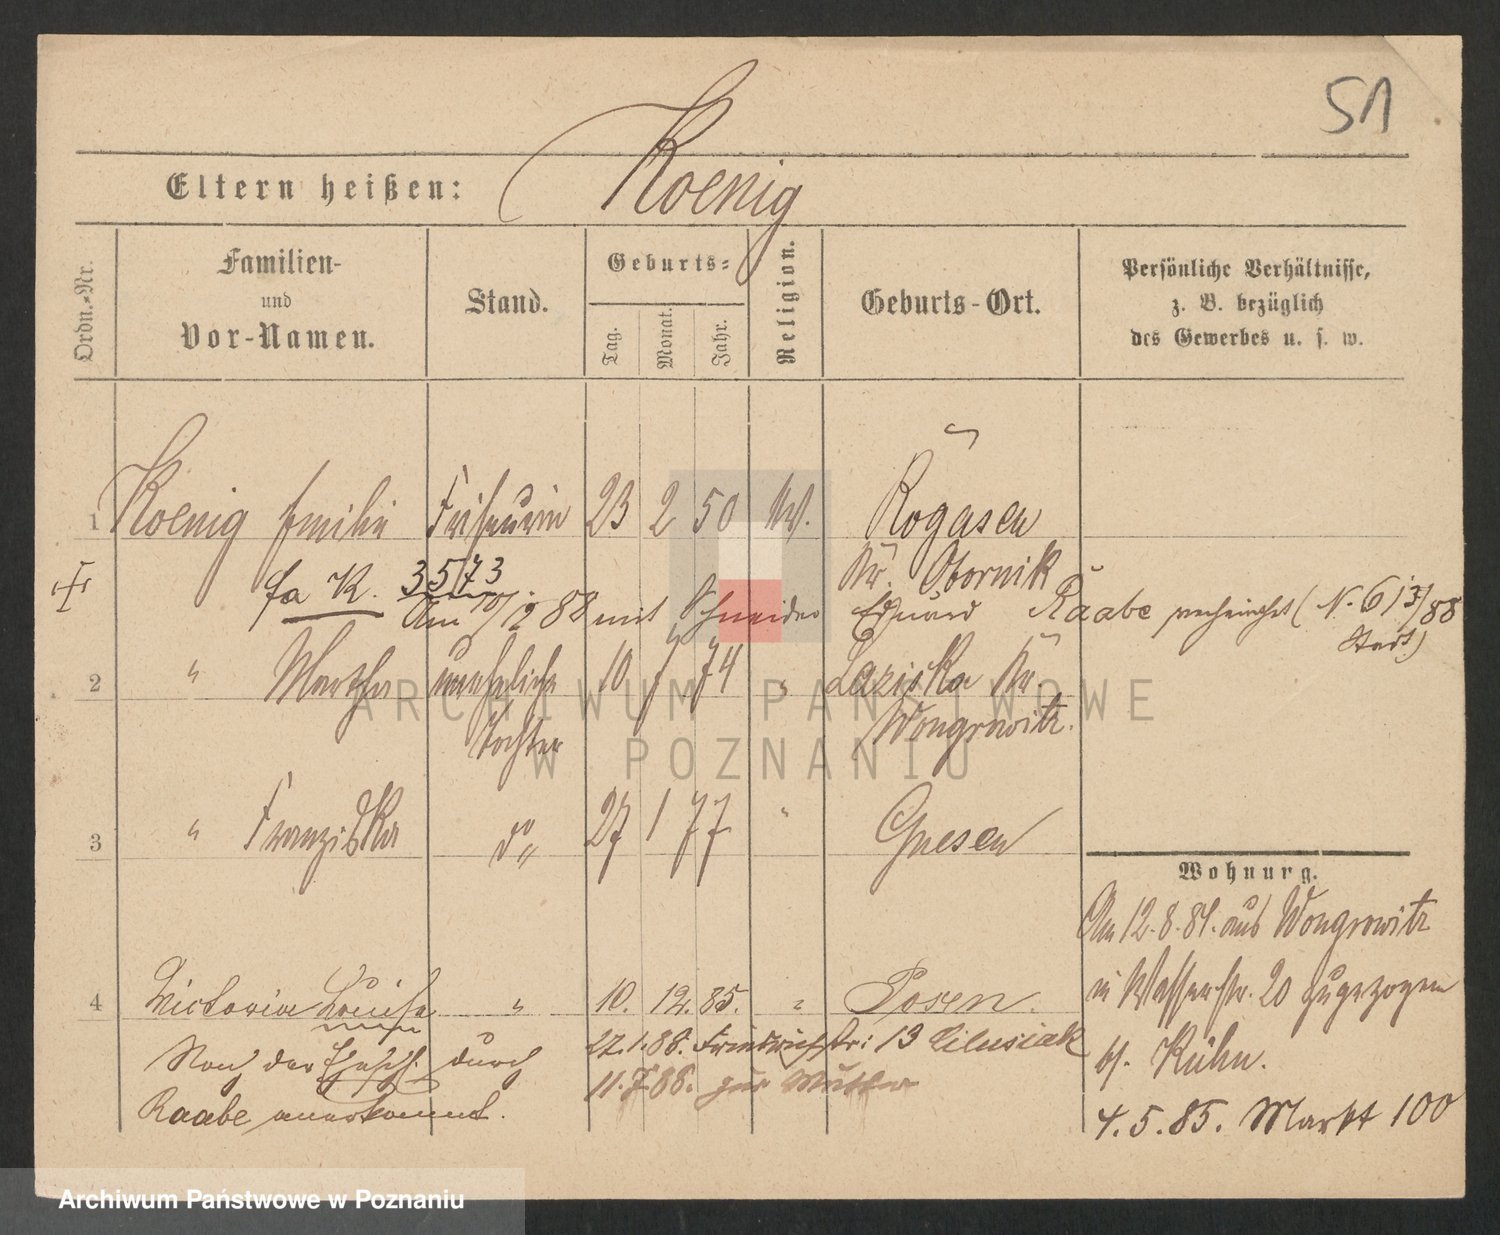 51
Eltern heißen: Koenig
Ordn.-Nr.
Familien-
und
Vor-Namen.
Stand.
Geburts-
Tag.
Monat.
Jahr.
Religion.
Geburts-Ort.
Persönliche Verhältnisse,
z. B. bezüglich
des Gewerbes u. s. w.
1 Koenig Emilie Friseurin 23 2 50 Rogasen
Kr. Obornik
fa K. 3573
Am 10/12 88 mit Schneider Eduard Raabe verheirathet (N. 613/88
2 " Martha uneheliche 10 7 74 " Laziska Kr
Tochter Wongrowitz.
3 " Franziska do 27 1 77 " Gnesen
Wohnung.
Am 12.8.84. aus Wongrowitz
in Wasserstr. 20 zugezogen
bf. Kühn.
4.5.85. Markt 100
4 Victoria Louise " 10. 12. 85. " Posen.
Nach der Ehesch. durch
Raabe anerkannt.
27.1.86. Friedrichstr: 13
11.7.86. zur Mutter
ARCHIWUM PAŃSTWOWE
W POZNANIU
Archiwum Państwowe w Poznaniu